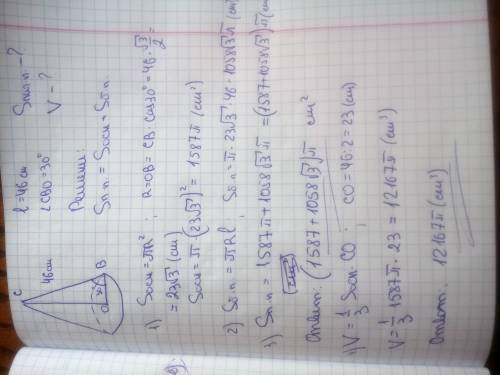 C
46см
B
O
30°
l=46см
∠CBO=30°
Sполн. – ?
V – ?
Решение:
Sп.п. = Sосн + Sб.п.
1) Sосн = πR² ; R=OB= CB · cos30° = 46 · √3/2 =
= 23√3 (см)
Sосн = π · (23√3)² = 1587π (см²)
2) Sб.п. = πRl ; Sб.п. = π · 23√3 · 46 = 1058√3π (см²)
3) Sп.п. = 1587π + 1058√3π = (1587+1058√3)π (см²)
Ответ: (1587+1058√3)π см²
1) V = 1/3 Sосн · CO ; CO = 46:2 = 23 (см)
V = 1/3 · 1587π · 23 = 12167π (см³)
Ответ: 12167π (см³)